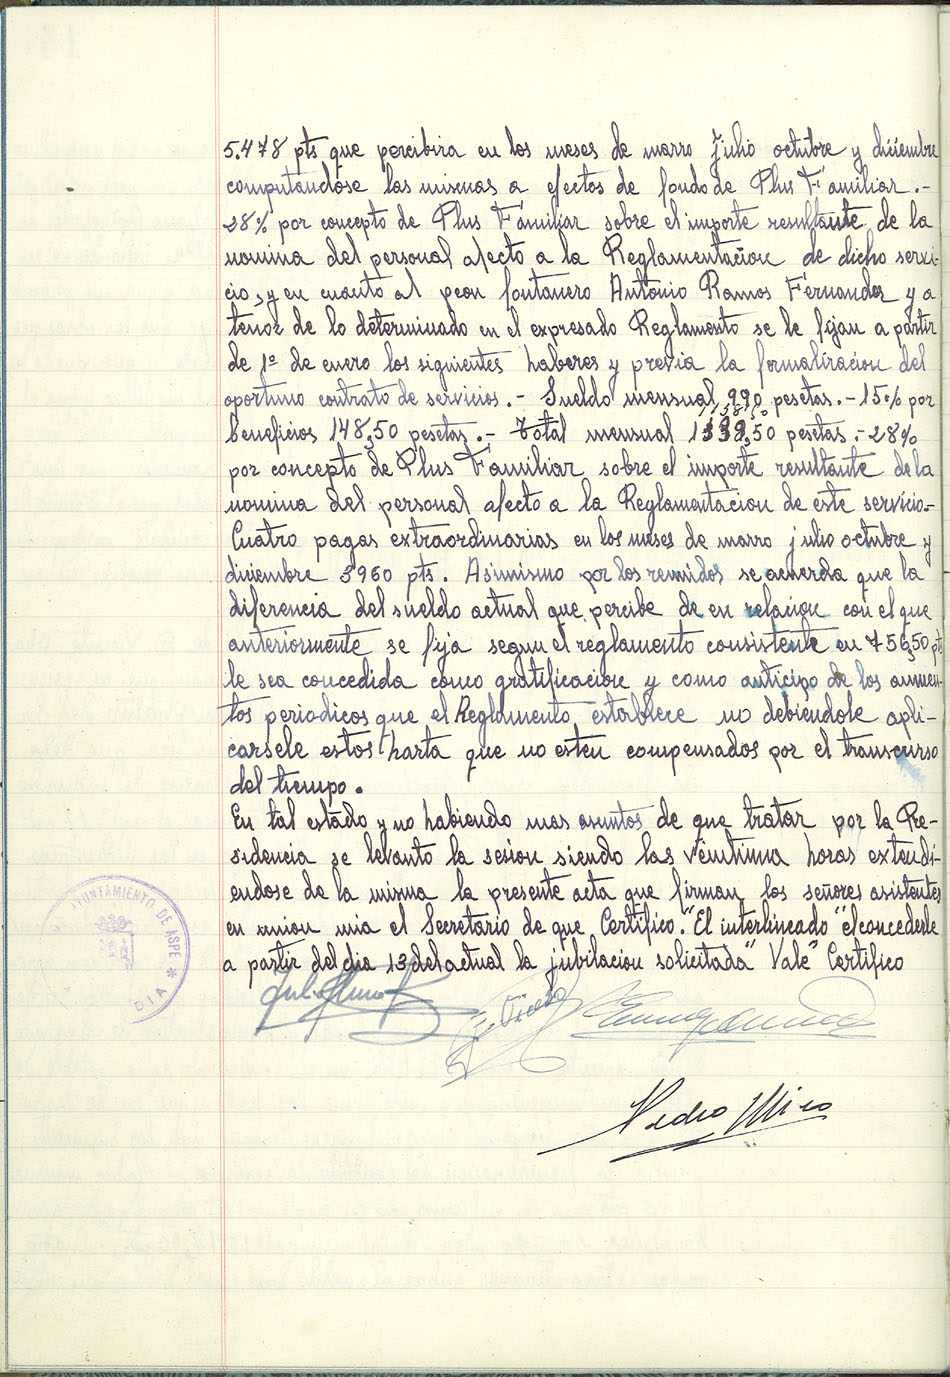 5.478 pts que percibira en los meses de marzo Julio octubre y diciembre
computandose las mismas a efectos de fondo de Plus Familiar.-
28% por concepto de Plus Familiar sobre el importe resultante de la
nomina del personal afecto a la Reglamentacion de dicho servi-
cio, y en cuanto al peon fontanero Antonio Ramos Fernandez y a
tenor de lo determinado en el expresado Reglamento se le fijan a partir
de 1º de enero los siguientes haberes y previa la formalizacion del
oportuno contrato de servicios.- Sueldo mensual 990 pesetas.- 15% por
beneficios 148,50 pesetas.- Total mensual 1138,50 pesetas.- 28%
por concepto de Plus Familiar sobre el importe resultante de la
nomina del personal afecto a la Reglamentacion de este servicio.-
Cuatro pagas extraordinarias en los meses de marzo julio octubre y
diciembre 3960 pts. Asimismo por los reunidos se acuerda que la
diferencia del sueldo actual que percibe de en relacion con el que
anteriormente se fija segun el reglamento consistente en 756,50 pts
le sea concedida como gratificacion y como anticipo de los aumen-
tos periodicos que el Reglamento establece no debiendole apli-
carsele estos hasta que no esten compensados por el transcurso
del tiempo.
En tal estado y no habiendo mas asuntos de que tratar por la Pre-
sidencia se levanto la sesion siendo las veintiuna horas extendi-
endose de la misma la presente acta que firman los señores asistentes
en union mia el Secretario de que Certifico. "El interlineado" "el concederle
a partir del dia 13 del actual la jubilacion solicitada" Vale" Certifico
AYUNTAMIENTO DE ASPE
Pedro Miro